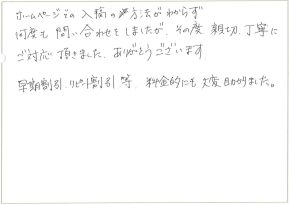 ホームページでの入稿の方法がわからず
何度も問い合わせをしましたが、その度、親切、丁寧に
ご対応頂きました。ありがとうございます
早期割引、リピート割引等、料金的にも大変助かりました。